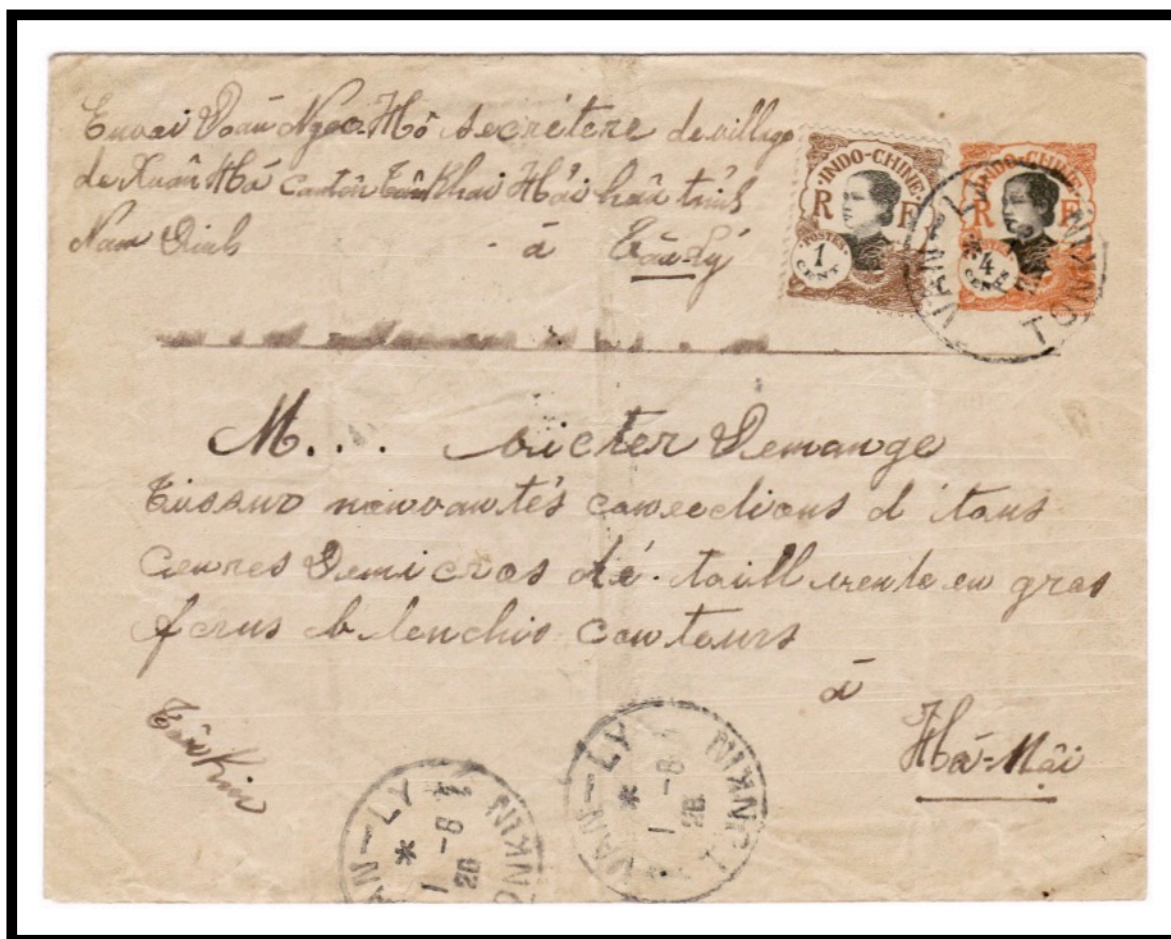 Envoi Doãn Ngọc Hồ secrétere de village
de Xuân Hà canton Tân Khai Hải hâu tỉnh
Nam Dinh à Văn-Lý
INDO-CHINE
R F
POSTES
1
CENT
INDO-CHINE
R F
4
CENTS
VAN-LY
TONKIN
M... victer Demange
Tissano nouvautés conections d'tous
Genres Demi cros dé-taill vente en gros
à
Hà-Nôi
Tônkin
VAN-LY TONKIN
1 -8
26
VAN-LY TONKIN
1 -8
26